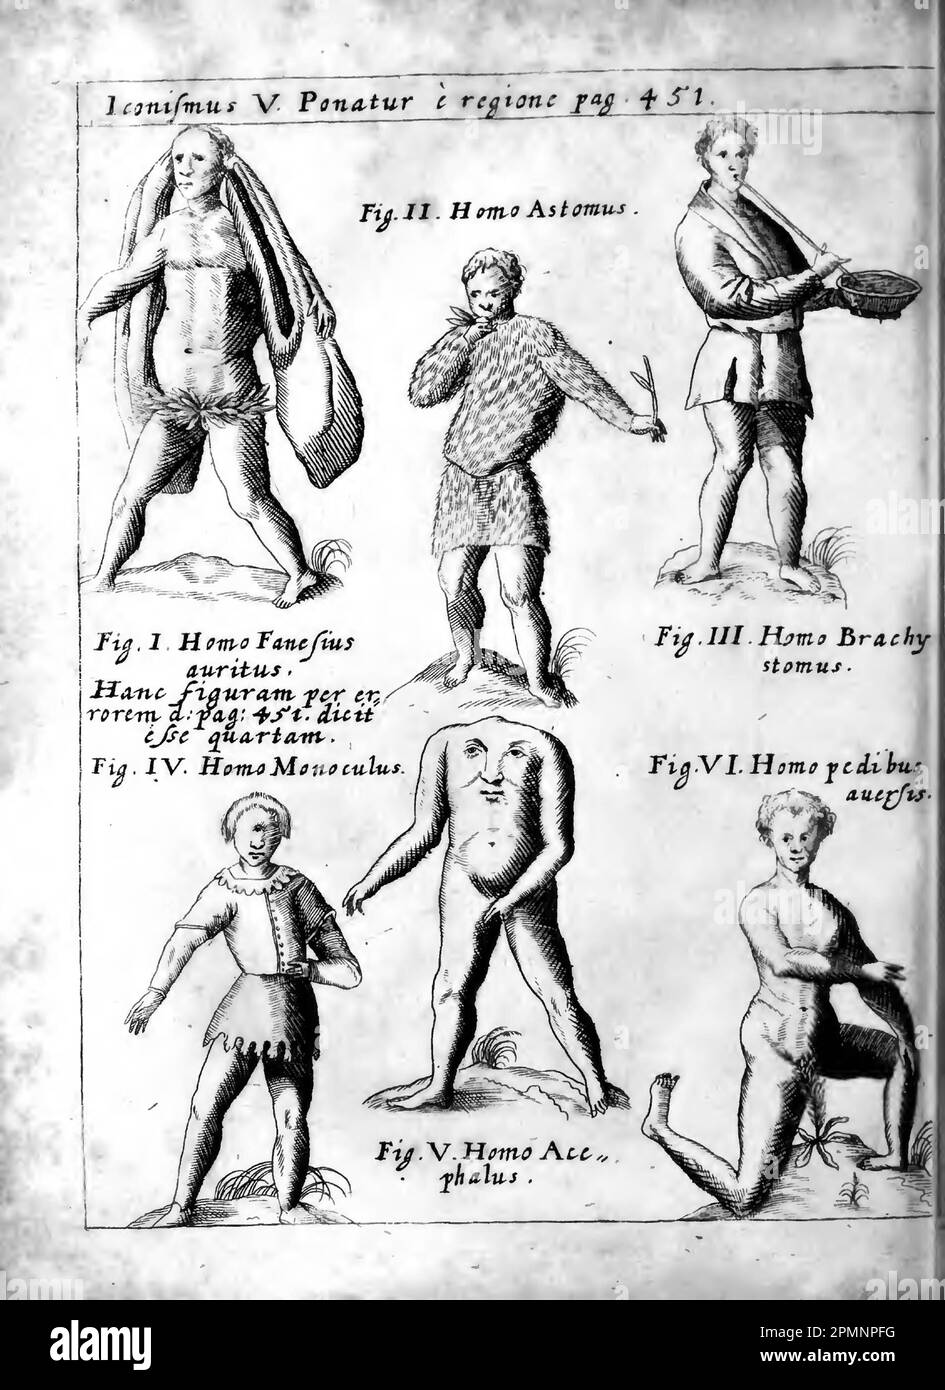 Iconiſmus V. Ponatur è regione pag. 451.
Fig. II. Homo Astomus.
Fig. I. Homo Faneſius
auritus.
Hanc figuram per er,
rorem d: pag: 451. dicit
eſse quartam.
Fig. III. Homo Brachy
stomus.
Fig. IV. Homo Monoculus.
Fig. VI. Homo pedibus
auerſis.
Fig. V. Homo Ace„
phalus.
alamy
Image ID: 2PMNPFG
www.alamy.com